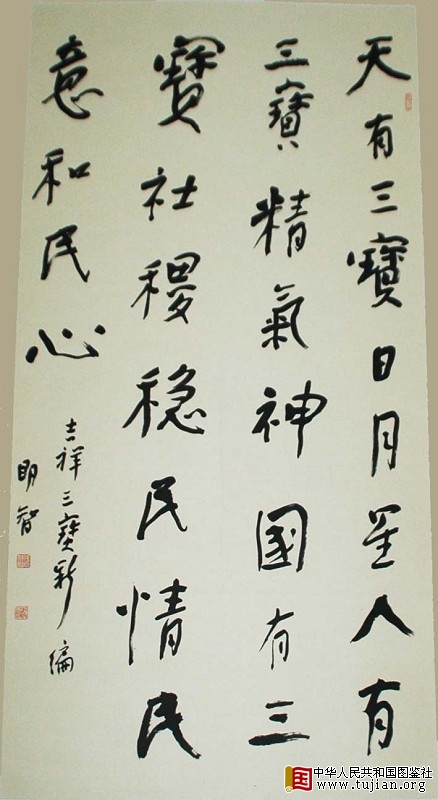 天有三寶日月星人有
三寶精氣神國有三
寶社稷稳民情民
意和民心
吉祥三寶新编
明智
中华人民共和国图鉴社
www.tujian.org